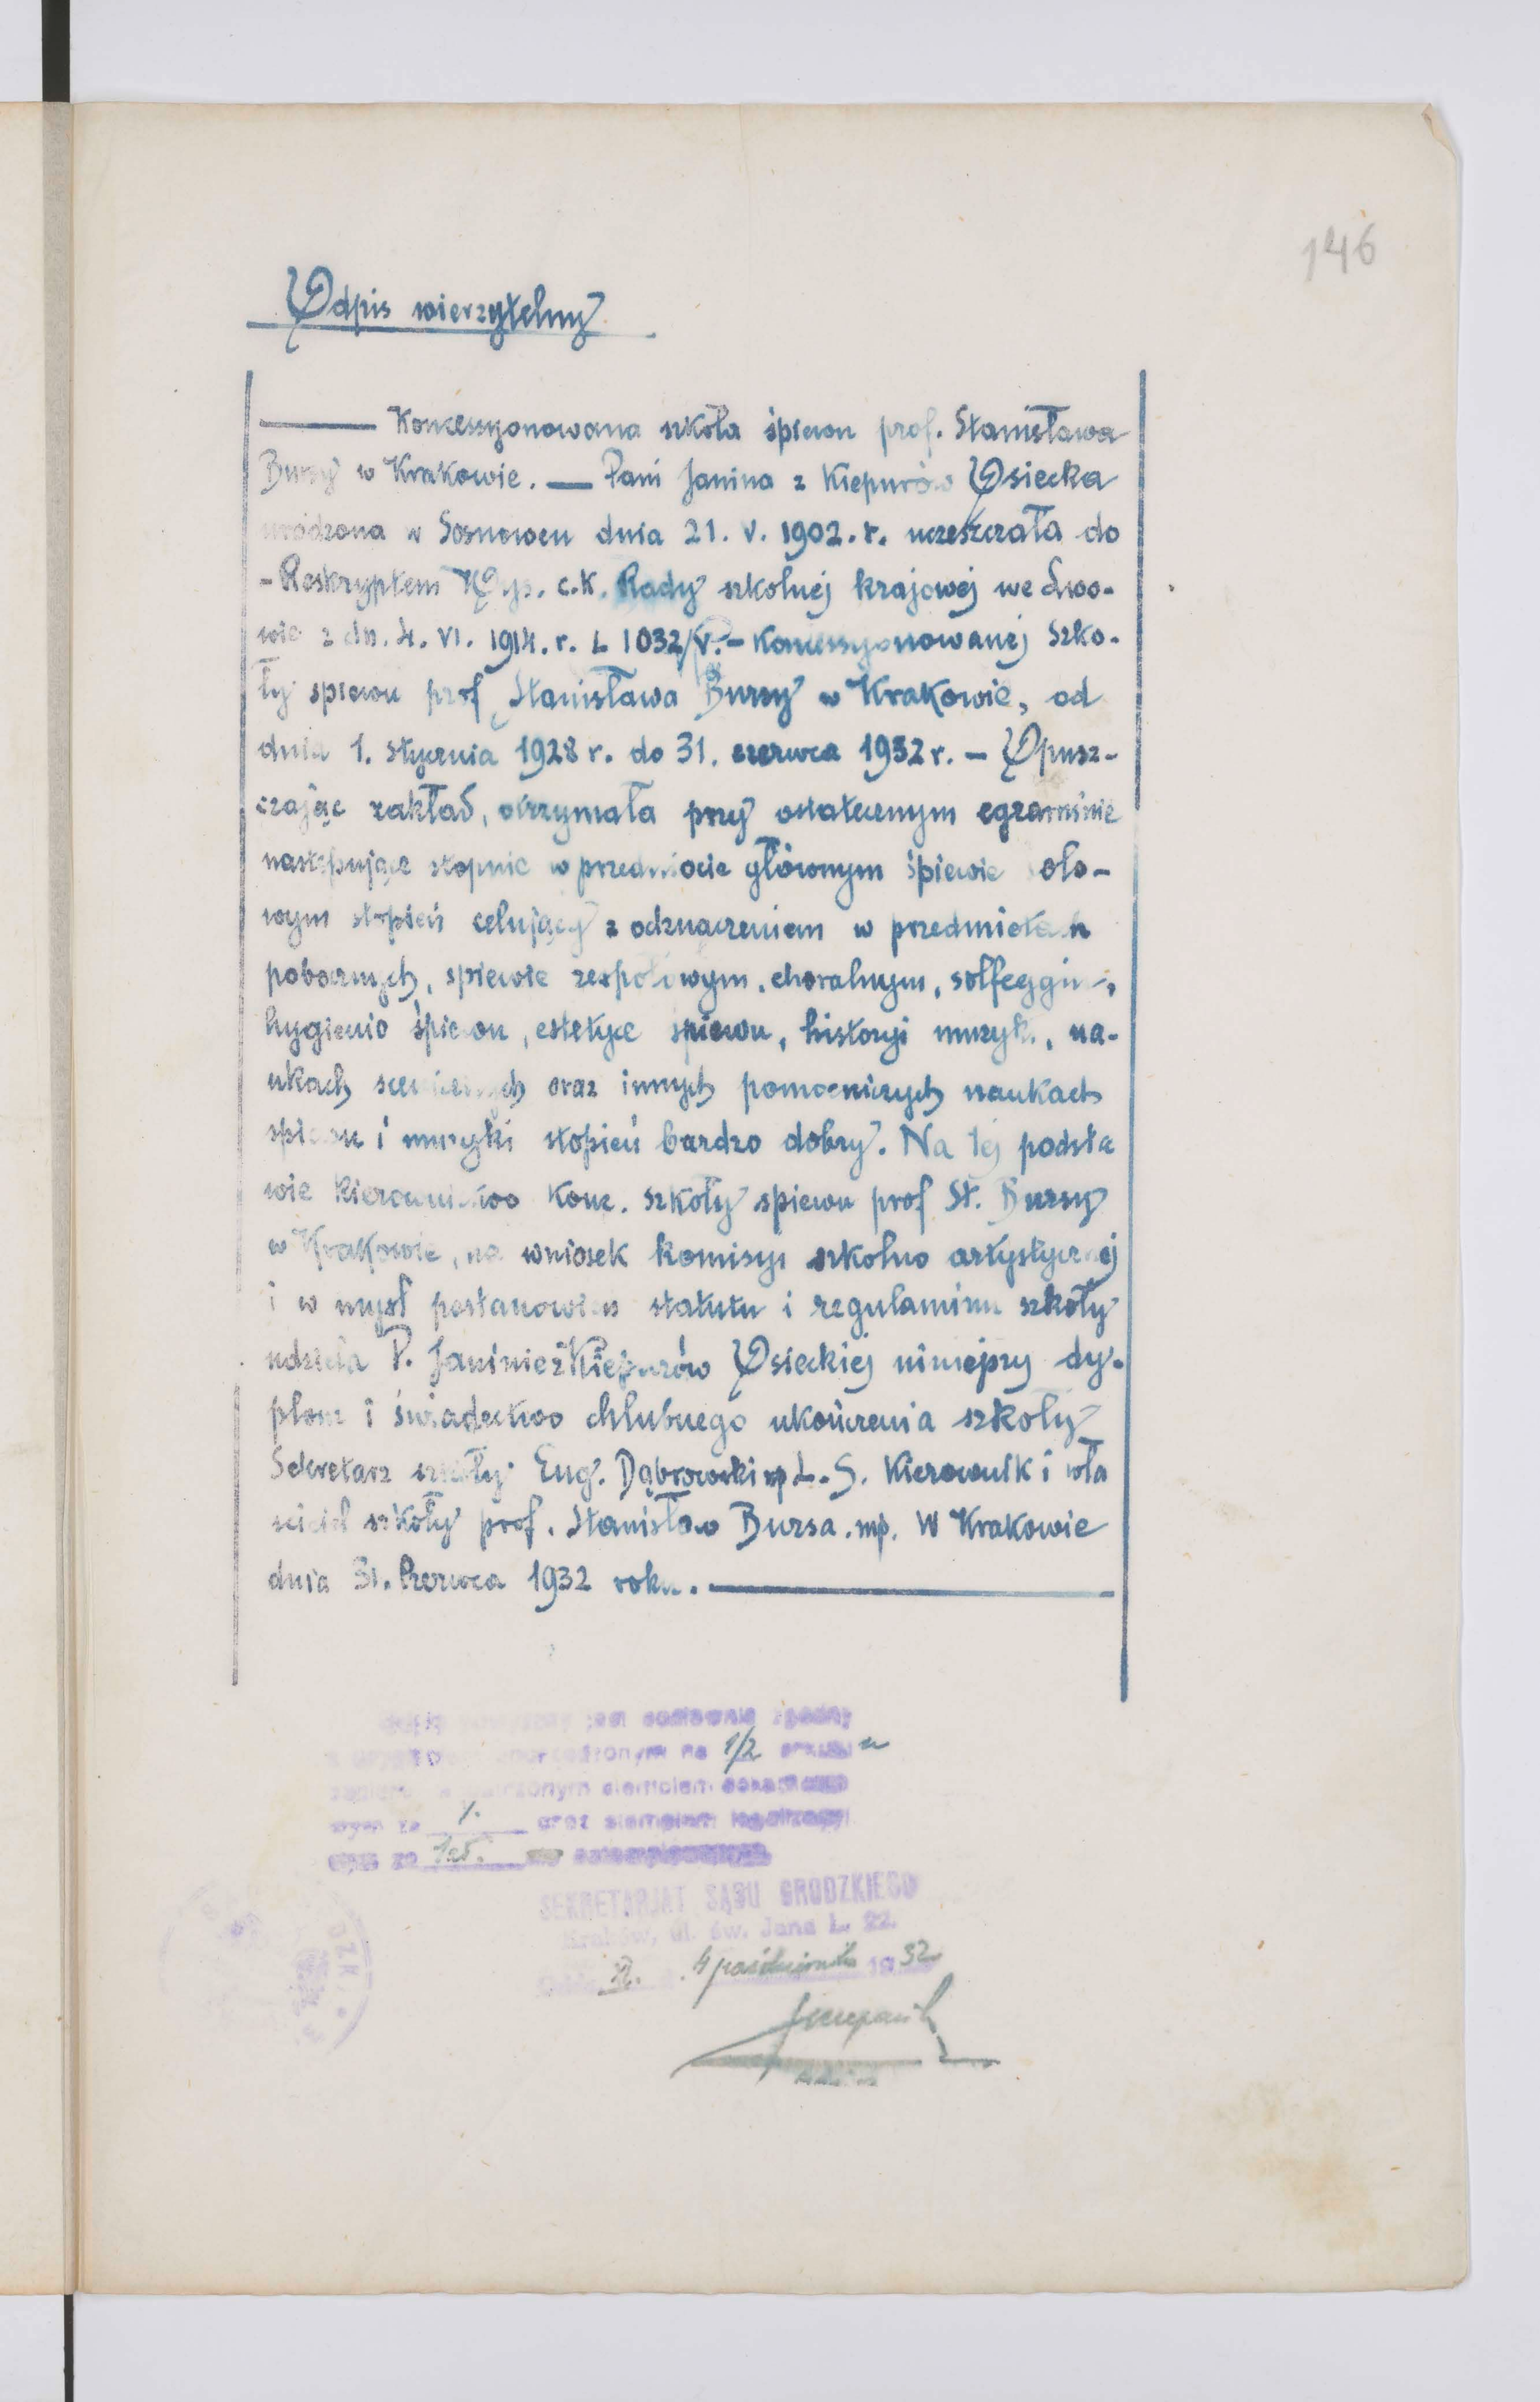 146
Odpis wierzytelny
Koncessyonowana szkoła śpiewu prof. Stanisława
Bursy w Krakowie. — Pani Janina z Kiepurów Osiecka
urodzona w Sosnowcu dnia 21. V. 1902. r. uczeszczała do
- Reskryptem Wys. c.k. Rady szkolnej krajowej we Lwo-
wie z dn. 4. VI. 1914. r. L 1032/V. - Koncessyonowanej Szko-
ły spiewu prof Stanisława Bursy w Krakowie, od
dnia 1. stycznia 1928 r. do 31. czerwca 1932 r. - Opusz-
czając zakład, otrzymała przy ostatecznym egzaminie
następujące stopnie w przedmiocie głównym śpiewie solo-
wym stopień celujący z odznaczeniem w przedmiotach
pobocznych, spiewie zespołowym, choralnym, solfeggiu,
hygienio śpiewu, estetyce spiewu, historyi muzyki, na-
ukach scenicznych oraz innych pomocniczych naukach
spiewu i muzyki stopień bardzo dobry. Na tej podsta
wie kierownictwo Konc. szkoły spiewu prof St. Bursy
w Krakowie, na wniosek komisyi szkolno artystycznej
i w mysl postanowien statutu i regulaminu szkoły
udziela P. Janinie z Kiepurów Osieckiej niniejszy dy-
plom i świadectwo chlubnego ukończenia szkoly
Sekretarz szkoły Eug. Dąbrowski mp L. S. Kierownik i wła
sciciel szkoły prof. Stanisław Bursa. mp. W Krakowie
dnia 31. Czerwca 1932 roku.
jest dosłownie zgodny
na 1/2 arkuszu
stemplem
oraz stemplem
SEKRETARJAT SĄDU GRODZKIEGO
Kraków, ul. św. Jana L. 22.
4 października 1932